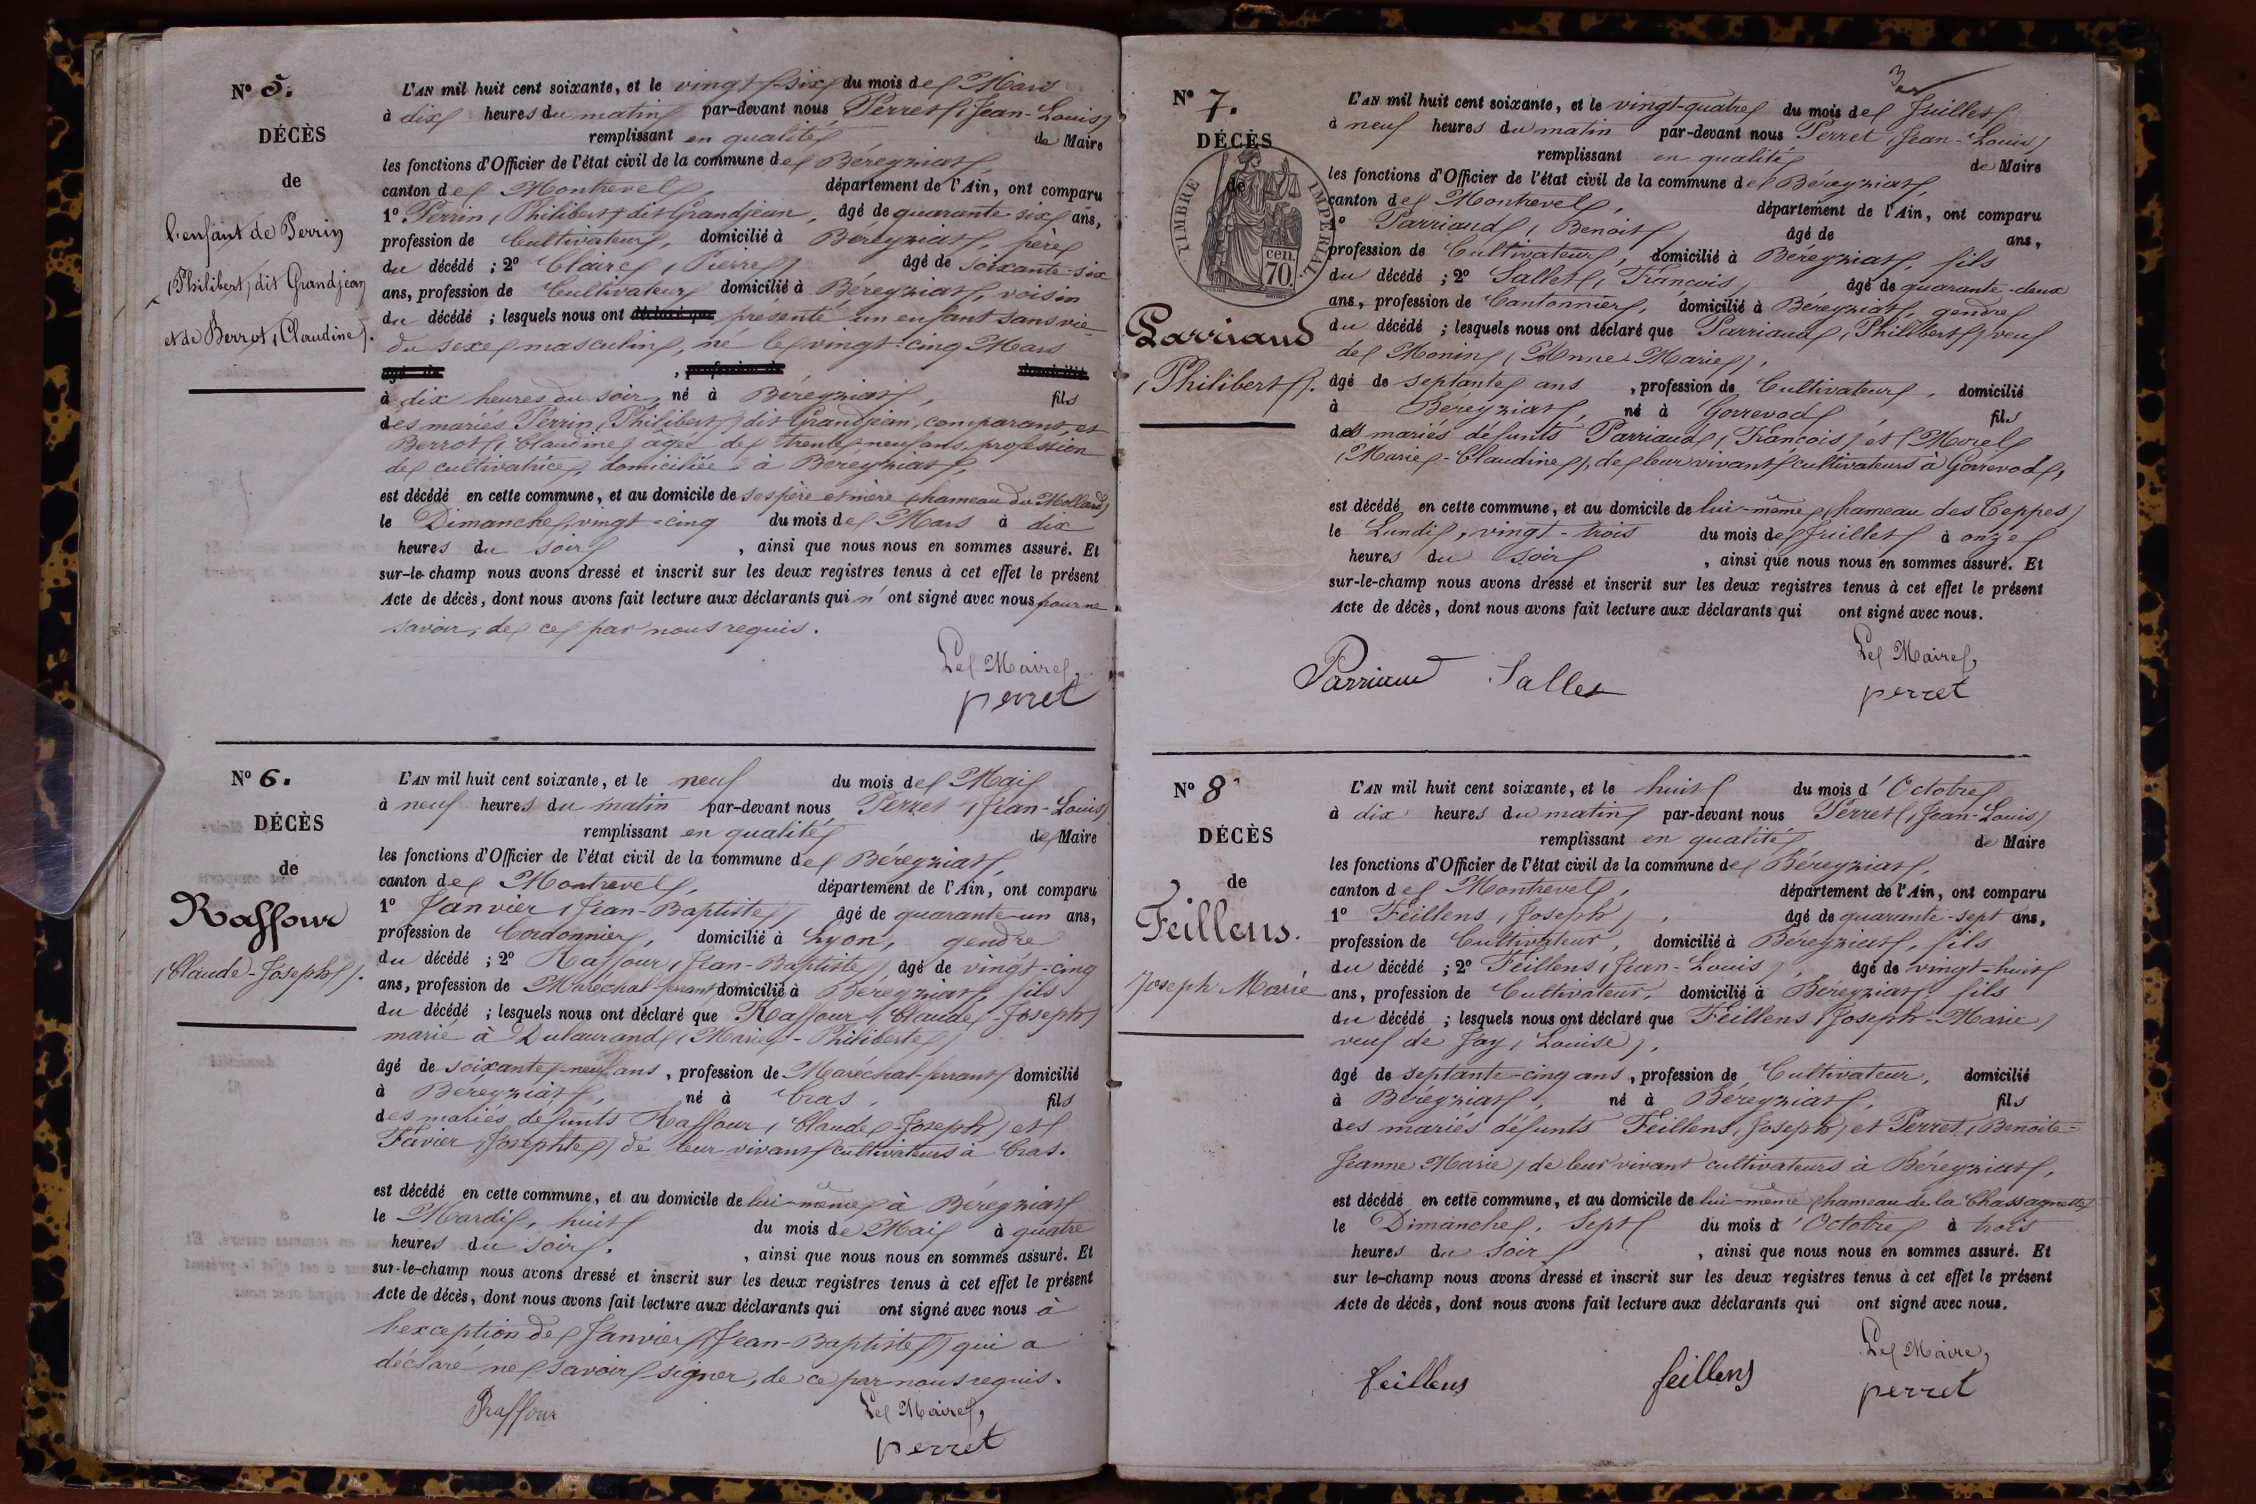 N° 5.
DÉCÈS
de
l'enfant de Perrin
(Philibert) dit Grandjean
et de Berrot (Claudine).
L'AN mil huit cent soixante, et le vingt-six du mois de Mars
à dix heures du matin par-devant nous Perret (Jean-Louis)
remplissant en qualité de Maire
les fonctions d'Officier de l'état civil de la commune de Béreyziat,
canton de Montrevel, département de l'Ain, ont comparu
1° Perrin (Philibert) dit Grandjean, âgé de quarante six ans,
profession de Cultivateur, domicilié à Béreyziat, père
du décédé ; 2° Claire (Pierre) âgé de soixante-six
ans, profession de Cultivateur domicilié à Béreyziat, voisin
du décédé ; lesquels nous ont déclaré que présenté un enfant sans vie
du sexe masculin, né le vingt-cinq Mars
âgé de , profession de domicilié
à dix heures du soir, né à Béreyziat, fils
des mariés Perrin (Philibert) dit Grandjean, comparant, et
Berrot (Claudine) agée de trente-neuf ans, profession
de cultivatrice, domiciliée à Béreyziat,
est décédé en cette commune, et au domicile de ses père et mère (hameau du Mollard)
le Dimanche, vingt-cinq du mois de Mars à dix
heures du soir , ainsi que nous nous en sommes assuré. Et
sur-le-champ nous avons dressé et inscrit sur les deux registres tenus à cet effet le présent
Acte de décès, dont nous avons fait lecture aux déclarants qui n'ont signé avec nous pour ne
savoir, de ce par nous requis.
Le Maire,
perret
N° 6.
DÉCÈS
de
Raffour
(Claude-Joseph).
L'AN mil huit cent soixante, et le neuf du mois de Mai
à neuf heures du matin par-devant nous Perret (Jean-Louis)
remplissant en qualité de Maire
les fonctions d'Officier de l'état civil de la commune de Béreyziat,
canton de Montrevel, département de l'Ain, ont comparu
1° Janvier (Jean-Baptiste) âgé de quarante-un ans,
profession de Cordonnier, domicilié à Lyon, gendre
du décédé ; 2° Raffour (Jean-Baptiste) âgé de vingt-cinq
ans, profession de Maréchal-ferrant domicilié à Béreyziat, fils
du décédé ; lesquels nous ont déclaré que Raffour (Claude-Joseph)
marié à Dulaurand (Marie-Philiberte)
âgé de soixante-neuf ans, profession de Maréchal-ferrant domicilié
à Béreyziat, né à Cras, fils
des mariés defunts Raffour (Claude-Joseph) et
Favier (Josephte) de leur vivant cultivateurs à Cras.
est décédé en cette commune, et au domicile de lui-même à Béreyziat
le Mardi, huit du mois de Mai à quatre
heures du soir. , ainsi que nous nous en sommes assuré. Et
sur-le-champ nous avons dressé et inscrit sur les deux registres tenus à cet effet le présent
Acte de décès, dont nous avons fait lecture aux déclarants qui ont signé avec nous à
l'exception de Janvier (Jean-Baptiste) qui a
déclaré ne savoir signer, de ce par nous requis.
Raffour
Le Maire,
perret
3
N° 7.
DÉCÈS
de
TIMBRE IMPÉRIAL
cen. 70.
Parriaud
(Philibert).
L'AN mil huit cent soixante, et le vingt-quatre du mois de Juillet
à neuf heures du matin par-devant nous Perret (Jean-Louis)
remplissant en qualité de Maire
les fonctions d'Officier de l'état civil de la commune de Béreyziat,
canton de Montrevel, département de l'Ain, ont comparu
1° Parriaud (Benoit) âgé de ans,
profession de Cultivateur, domicilié à Béreyziat, fils
du décédé ; 2° Sallet (François) âgé de quarante-deux
ans, profession de Cantonnier, domicilié à Béreyziat, gendre
du décédé ; lesquels nous ont déclaré que Parriaud (Philibert) veuf
de Monin (Anne-Marie),
âgé de septante ans , profession de Cultivateur, domicilié
à Béreyziat, né à Gorrevod fils
des mariés défunts Parriaud (François) et Morel
(Marie-Claudine), de leur vivant cultivateurs à Gorrevod,
est décédé en cette commune, et au domicile de lui-même (hameau des Teppes)
le Lundi, vingt-trois du mois de Juillet à onze
heures du soir , ainsi que nous nous en sommes assuré. Et
sur-le-champ nous avons dressé et inscrit sur les deux registres tenus à cet effet le présent
Acte de décès, dont nous avons fait lecture aux déclarants qui ont signé avec nous.
Parriaud Sallet
Le Maire,
perret
N° 8
DÉCÈS
de
Feillens.
Joseph Marie
L'AN mil huit cent soixante, et le huit du mois d'Octobre
à dix heures du matin par-devant nous Perret (Jean-Louis)
remplissant en qualité de Maire
les fonctions d'Officier de l'état civil de la commune de Béreyziat,
canton de Montrevel, département de l'Ain, ont comparu
1° Feillens (Joseph), âgé de quarante-sept ans,
profession de Cultivateur, domicilié à Béreyziat, fils
du décédé ; 2° Feillens (Jean-Louis), âgé de vingt-huit
ans, profession de Cultivateur, domicilié à Béreyziat, fils
du décédé ; lesquels nous ont déclaré que Feillens (Joseph-Marie)
veuf de Jay (Louise),
âgé de septante-cinq ans, profession de Cultivateur, domicilié
à Béreyziat, né à Béreyziat, fils
des mariés défunts Feillens (Joseph) et Perret (Benoite-
Jeanne Marie) de leur vivant cultivateurs à Béreyziat,
est décédé en cette commune, et au domicile de lui-même (hameau de la Chassagnette)
le Dimanche, sept du mois d'Octobre à trois
heures du soir , ainsi que nous nous en sommes assuré. Et
sur le-champ nous avons dressé et inscrit sur les deux registres tenus à cet effet le présent
Acte de décès, dont nous avons fait lecture aux déclarants qui ont signé avec nous.
feillens feillens
Le Maire,
perret